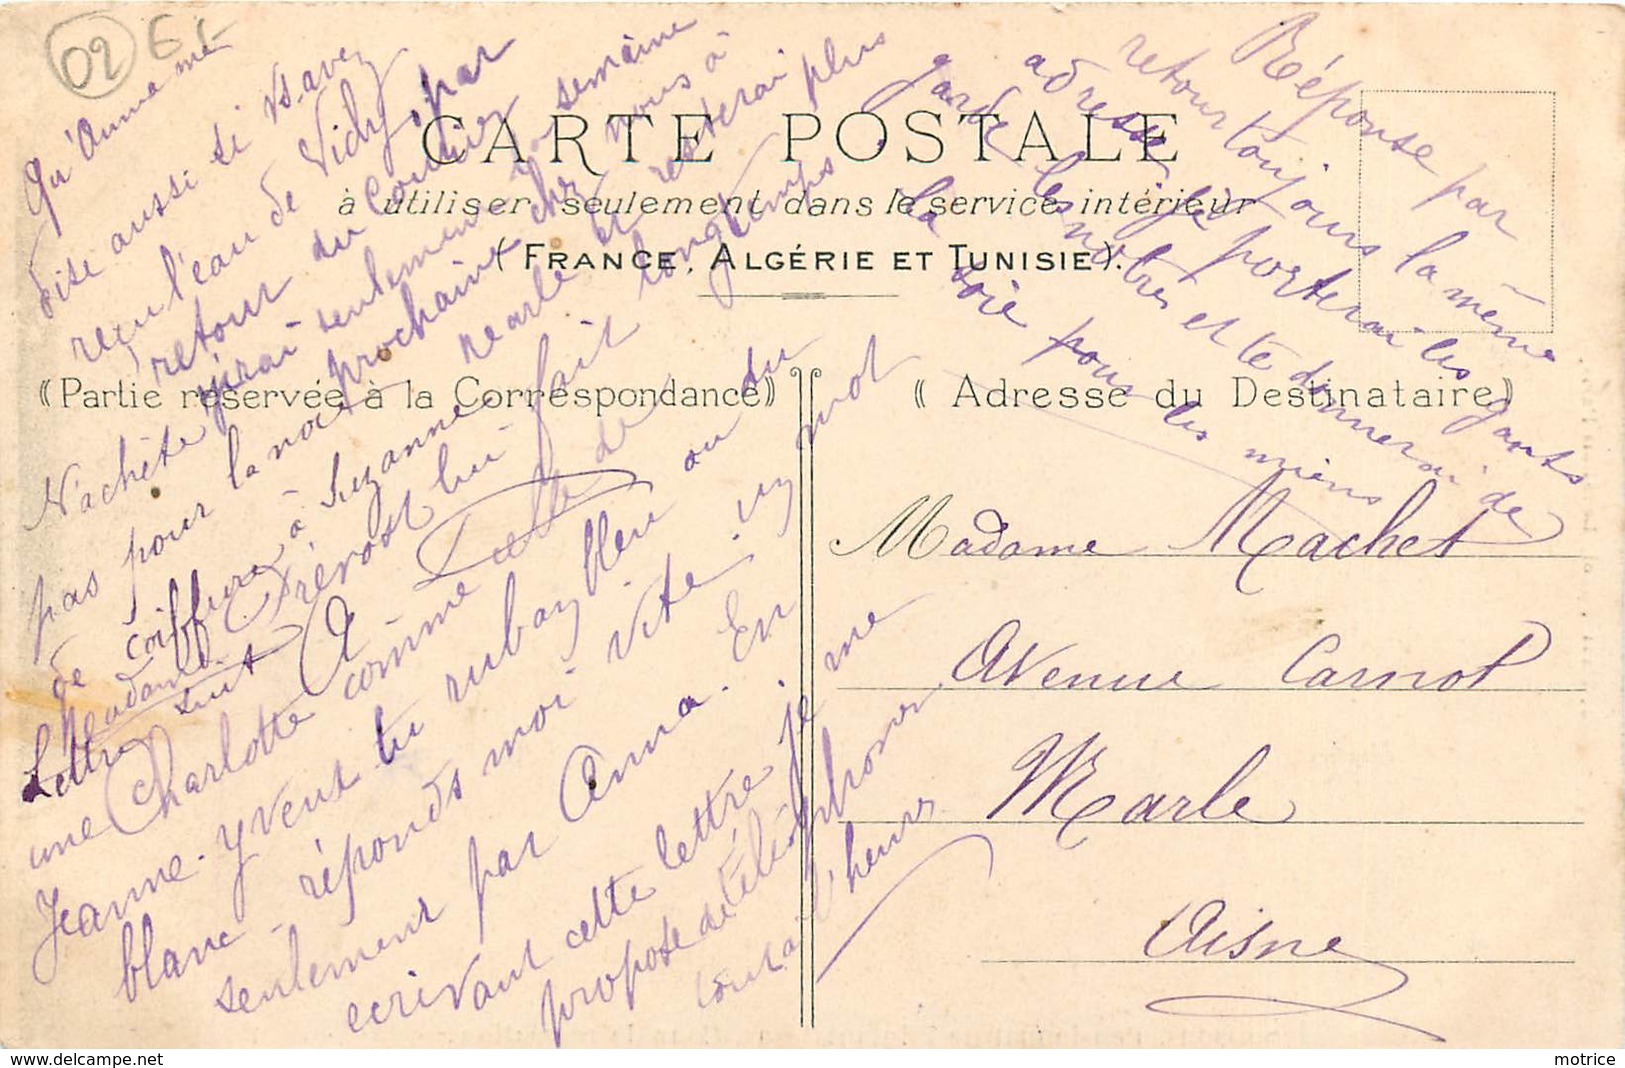 02 EL
Qu'Anna me
dise aussi si vs avez
reçu l'eau de Vichy, par
retour du courrier
j'irai seulement à semaine
prochaine chez nous à
Marle et resterai plus
longtemps.
N'achète
pas pour la noce
de coiffure à Suzanne
Madame Prévost lui fait
Lettre suit
une Charlotte comme celle de
Jeanne. Y veux tu ruban bleu ou du
blanc - réponds moi vite. un mot
seulement par Anna. En
ecrivant cette lettre je me
propose de téléphoner
tout à l'heure
Réponse par
retour toujours la même
adresse, je porterai les gants
garde les notres et te donnerai de
la soie pour les miens
CARTE POSTALE
à utiliser seulement dans le service intérieur
(FRANCE, ALGÉRIE ET TUNISIE).
((Partie réservée à la Correspondance))
((Adresse du Destinataire))
Madame Machet
Avenue Carnot
Marle
Aisne
www.delcampe.net
motrice